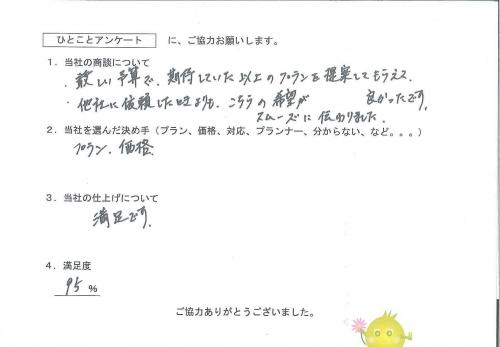 ひとことアンケート に、ご協力お願いします。
1．当社の商談について
・厳しい予算で、期待していた以上のプランを提案してもらえて
良かったです。
・他社に依頼したときよりも、こちらの希望が
スムーズに伝わりました。
2．当社を選んだ決め手（プラン、価格、対応、プランナー、分からない、など。。。）
プラン、価格
3．当社の仕上げについて
満足です。
4．満足度
95 %
ご協力ありがとうございました。